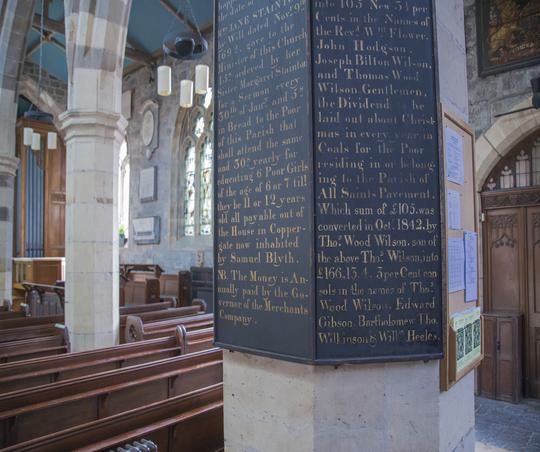 the date of
Mrs JANE STAINTON
by Will dated Novr. 9th
1692. gave to the
Minister of this Church
15s. ordered by her
Sister Margaret Stainton
for a Sermon every
30th of Janry. and 5s.
in Bread to the Poor
of this Parish that
shall attend the same
and 30s. yearly for
educating 6 Poor Girls
of the age of 6 or 7 till
they be 11 or 12 years
old all payable out of
the House in Copper-
gate now inhabited
by Samuel Blyth.
NB. The Money is An-
nually paid by the Go-
vernor of the Merchants
Company.
into 105 New 3½ per
Cents in the Names of
the Revd. Wm. Flower.
John Hodgson.
Joseph Bilton Wilson.
and Thomas Wood
Wilson. Gentlemen.
the Dividend to be
laid out about Christ
mas in every year in
Coals for the Poor
residing in or belong
ing to the Parish of
All Saints Pavement.
Which sum of £105. was
converted in Oct. 1842. by
Thos. Wood Wilson. son of
the above Thos. Wilson, into
£166.13.4. 3 per Cent con
sols in the names of Thos.
Wood Wilson. Edward
Gibson. Bartholomew Tho.
Wilkinson & Willm. Heeles.